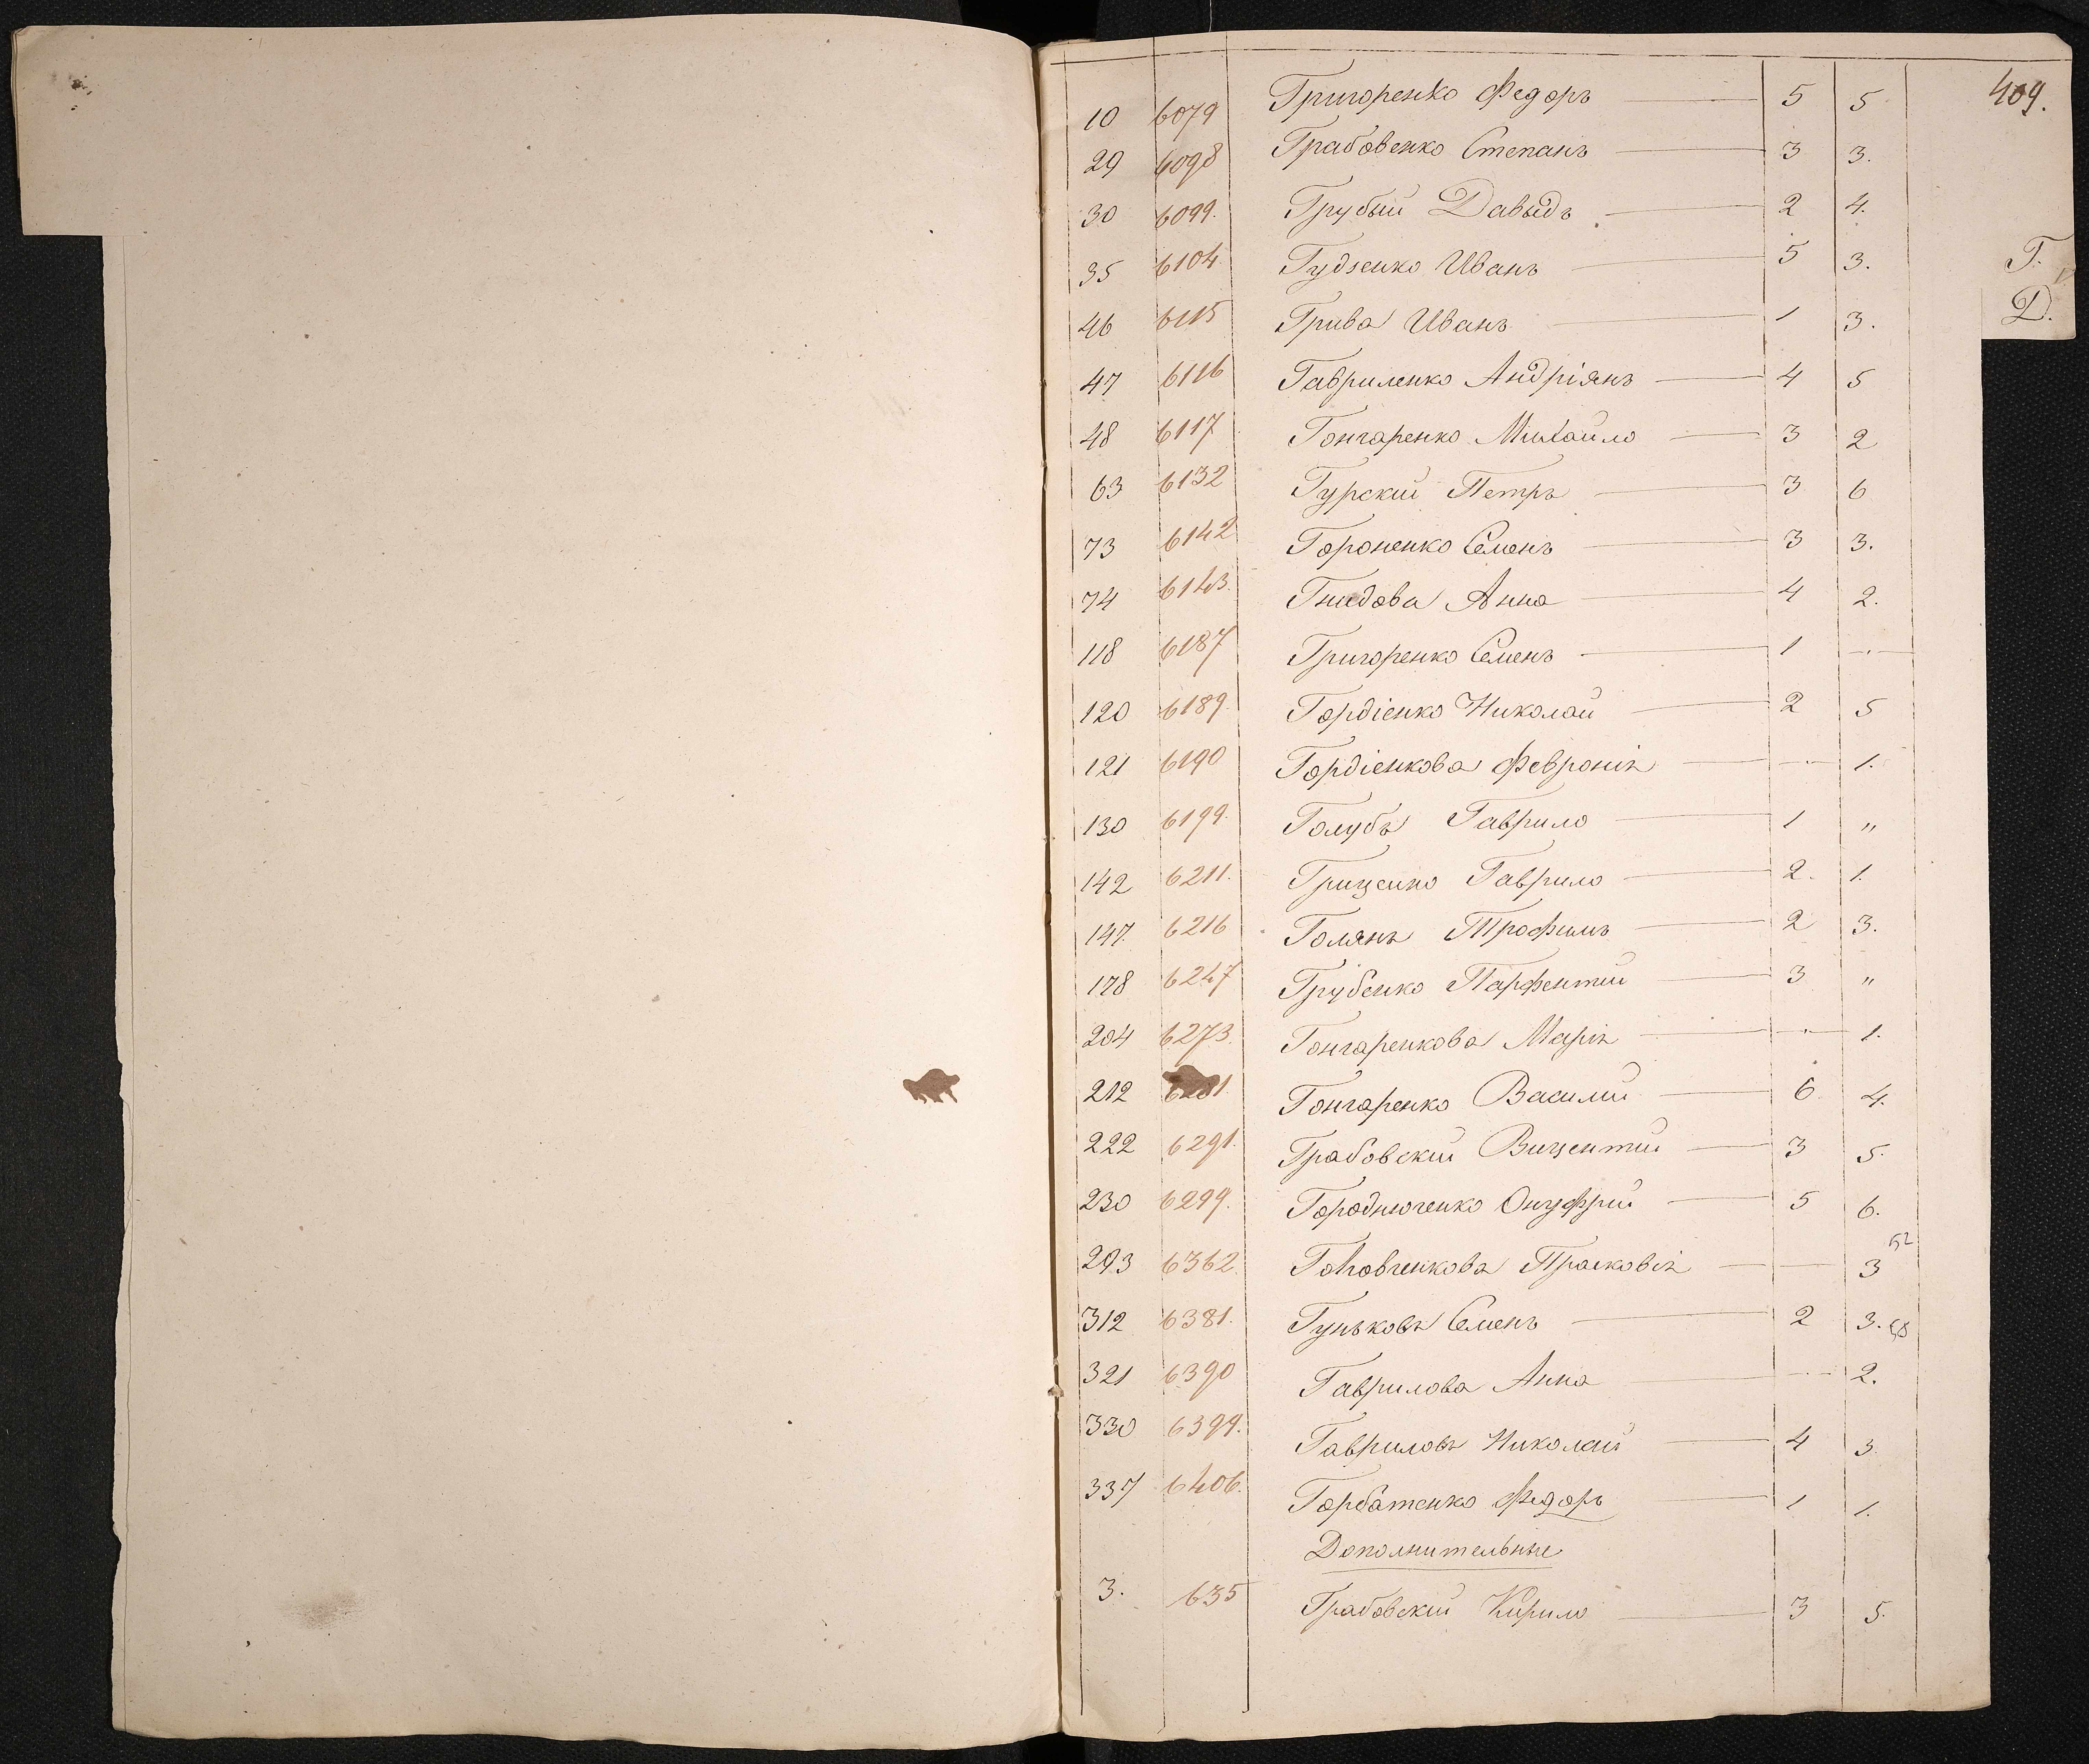 409.
10 6079 Григоренко Федоръ — 5 5
29 6098 Грабовенко Степанъ — 3 3.
30 6099. Грубый Давыдъ — 2 4.
35 6104 Гудзенко Иванъ — 5 3.
Г.
46 6115 Грива Иванъ — 1 3.
Д.
47 6116 Гавриленко Андріянъ — 4 5
48 6117 Гончаренко Михайло — 3 2
63 6132 Гурский Петръ — 3 6
73 6142 Гороненко Семенъ — 3 3.
74 6143. Гнидова Анна — 4 2.
118 6187 Григоренко Семенъ — 1 —
120 6189. Гордіенко Николай — 2 5
121 6190 Гордіенкова Февронія — — 1.
130 6199. Голубъ Гаврило — 1 "
142 6211. Гриценко Гаврило — 2. 1.
147. 6216 Голянъ Трофимъ — 2 3.
178 6247 Грубенко Парфентий — 3 "
204 6273. Гончаренкова Марія — — 1.
212 6281. Гончаренко Василий — 6 4.
222 6291. Грабовский Вицентий — 3 5.
230 6299. Городнюченко Онуфрий — 5 6.
293 6362. Головченкова Прасковія — — 3
312 6381. Гуньковъ Семенъ — 2 3.
321 6390 Гаврилова Анна — — 2.
330 6399. Гавриловъ Николай — 4 3.
337 6406. Горбатенко Федоръ — 1 1.
Дополнительные
3. 635 Грабовский Кирило — 3 5.